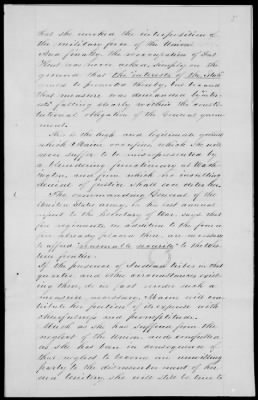 5
that she invoked the interposition of
the military force of the Union.
And finally, the reoccupation of Fort
Kent was never asked, simply on the
ground that the interests of the state
would be promoted thereby, but beyond
that measure was demanded by inter-
ests falling clearly within the consti-
tutional obligation of the General govern-
ment.
This is the high and legitimate ground
which Maine occupies, which I would
never suffer to be misrepresented by
a blundering functionary at Wash-
ington, and from which no insulting
denial of justice shall ever debar her.
The commanding General of the
United States army, in his last annual
report to the Secretary of War, says that
five regiments, in addition to the force
already placed there, are needed
to afford "reasonable security" to the Wes-
tern frontier.
If the presence of Indian tribes in that
quarter and other circumstances exist-
ing there, do in fact render such a
measure necessary, Maine will con-
tribute her portion of the expense with
cheerfulness and promptitude.
Much as she has suffered from the
neglect of the Union, and compelled
as she has been in consequence of
that neglect to become an unwilling
party to the dismemberment of her
own territory, she will still be true to